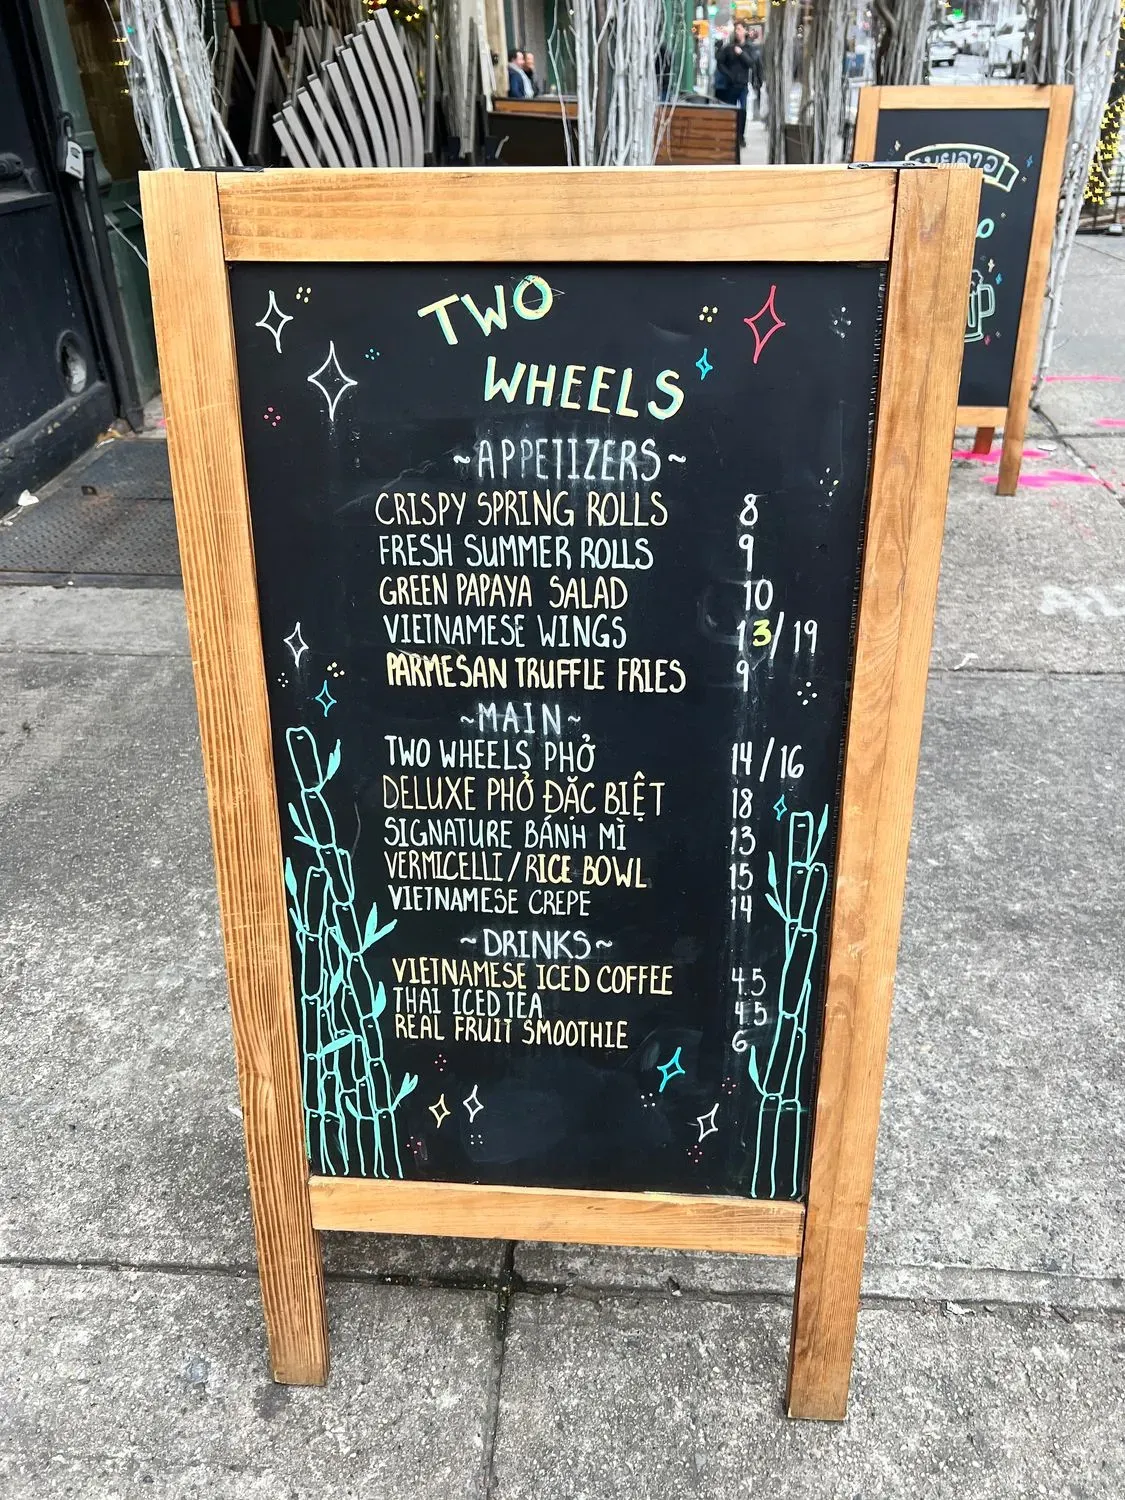 TWO
WHEELS
~APPETIZERS~
CRISPY SPRING ROLLS 8
FRESH SUMMER ROLLS 9
GREEN PAPAYA SALAD 10
VIETNAMESE WINGS 13/19
PARMESAN TRUFFLE FRIES 9
~MAIN~
TWO WHEELS PHỞ 14/16
DELUXE PHỞ ĐẶC BIỆT 18
SIGNATURE BÁNH MÌ 13
VERMICELLI/RICE BOWL 15
VIETNAMESE CREPE 14
~DRINKS~
VIETNAMESE ICED COFFEE 4.5
THAI ICED TEA 4.5
REAL FRUIT SMOOTHIE 6